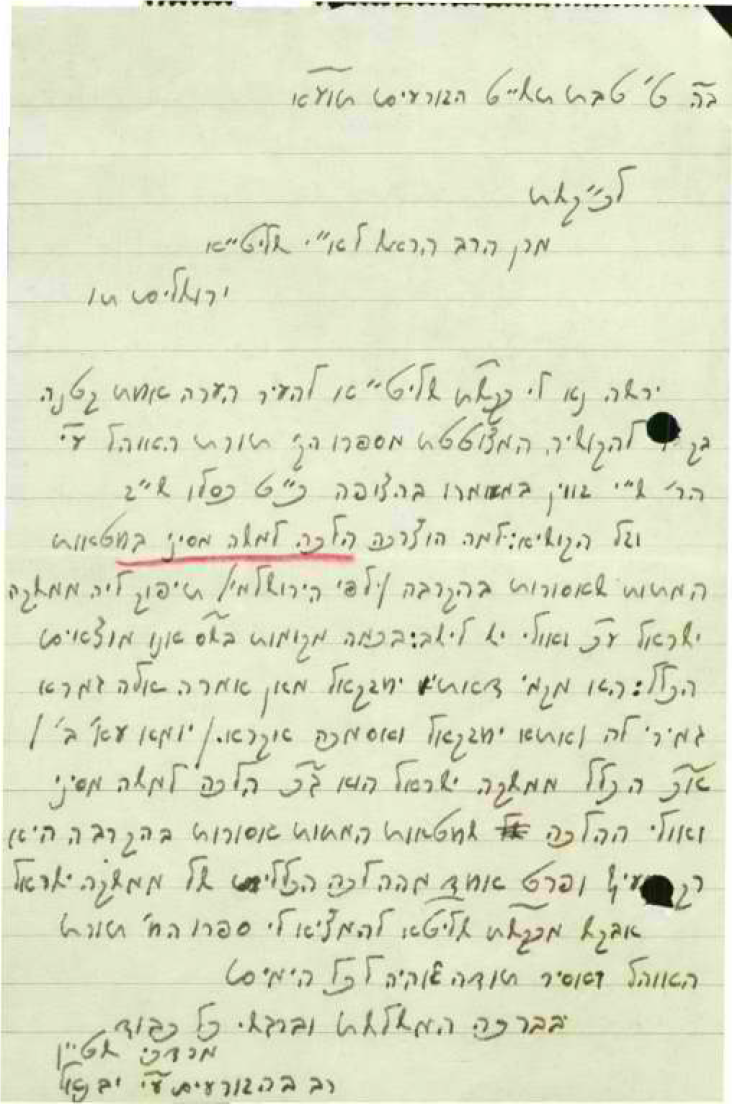 ב״ה ט' טבת תשי״ט הזורעים תוע״א
לכ״ק את
מרן הרב הראשי לא״י שליט״א
ירושלים תו
ירשה נא לי כק״ת שליט״א להעיר הערה אחת קטנה
להקושיה המצוטטת מספרו הק' תורת האוהל ע״י
הר' ש״י זווין במאמרו בהצופה כ״ט כסלו ש״ז
וזל הקושיא: למה הוצרכה הלכה למשה מסיני בחטאות
המתות שאסורות בהקרבה /לפי הירושלמי/ תיפוק ליה ממשקה
ישראל עכ״ל ואולי יש לישב: בכמה מקומות בש״ס אנו מוצאים
הכלל: הא מקמי דאתי יחזקאל מאן אמרה אלא גמרא
גמירי לה ואתא יחזקאל ואסמכה אקרא. /יומא עא' ב'/
א״כ הכלל ממשקה ישראל הוא ג״כ הלכה למשה מסיני
ואולי ההלכה שחטאות המתות אסורות בהקרבה היא
רק ופרט אחד מההלכה הכללית של ממשקה ישראל
אבקש מכק״ת שליט״א להמציא לי ספרו הח' תורת
האוהל ואסיר תודה אהיה לכל הימים
בברכה המשולשת וברגשי כל כבוד
מרדכי שטיין
רב בהזורעים ע״י יבנאל